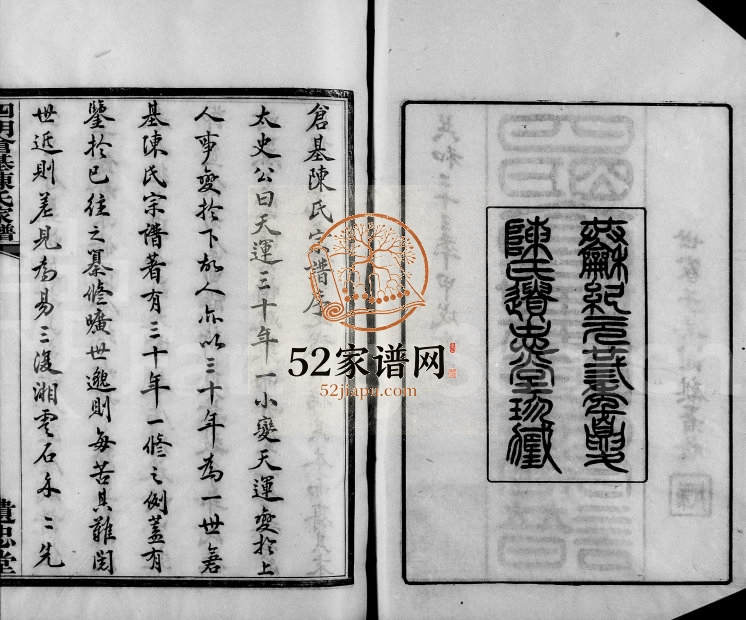 共龢紀元廿弎年
陳氏遺忠堂珍藏
倉基陳氏宗譜序
太史公曰天運三十年一小變天運變於上
人事變於下故人亦以三十年為一世倉
基陳氏宗譜著有三十年一修之例蓋有
鑒於已往之纂修曠世邈則每苦其難閱
世近則差見為易三復湘雲石禾二先
四明倉基陳氏家譜
遺忠堂
52家谱网
52jiapu.com